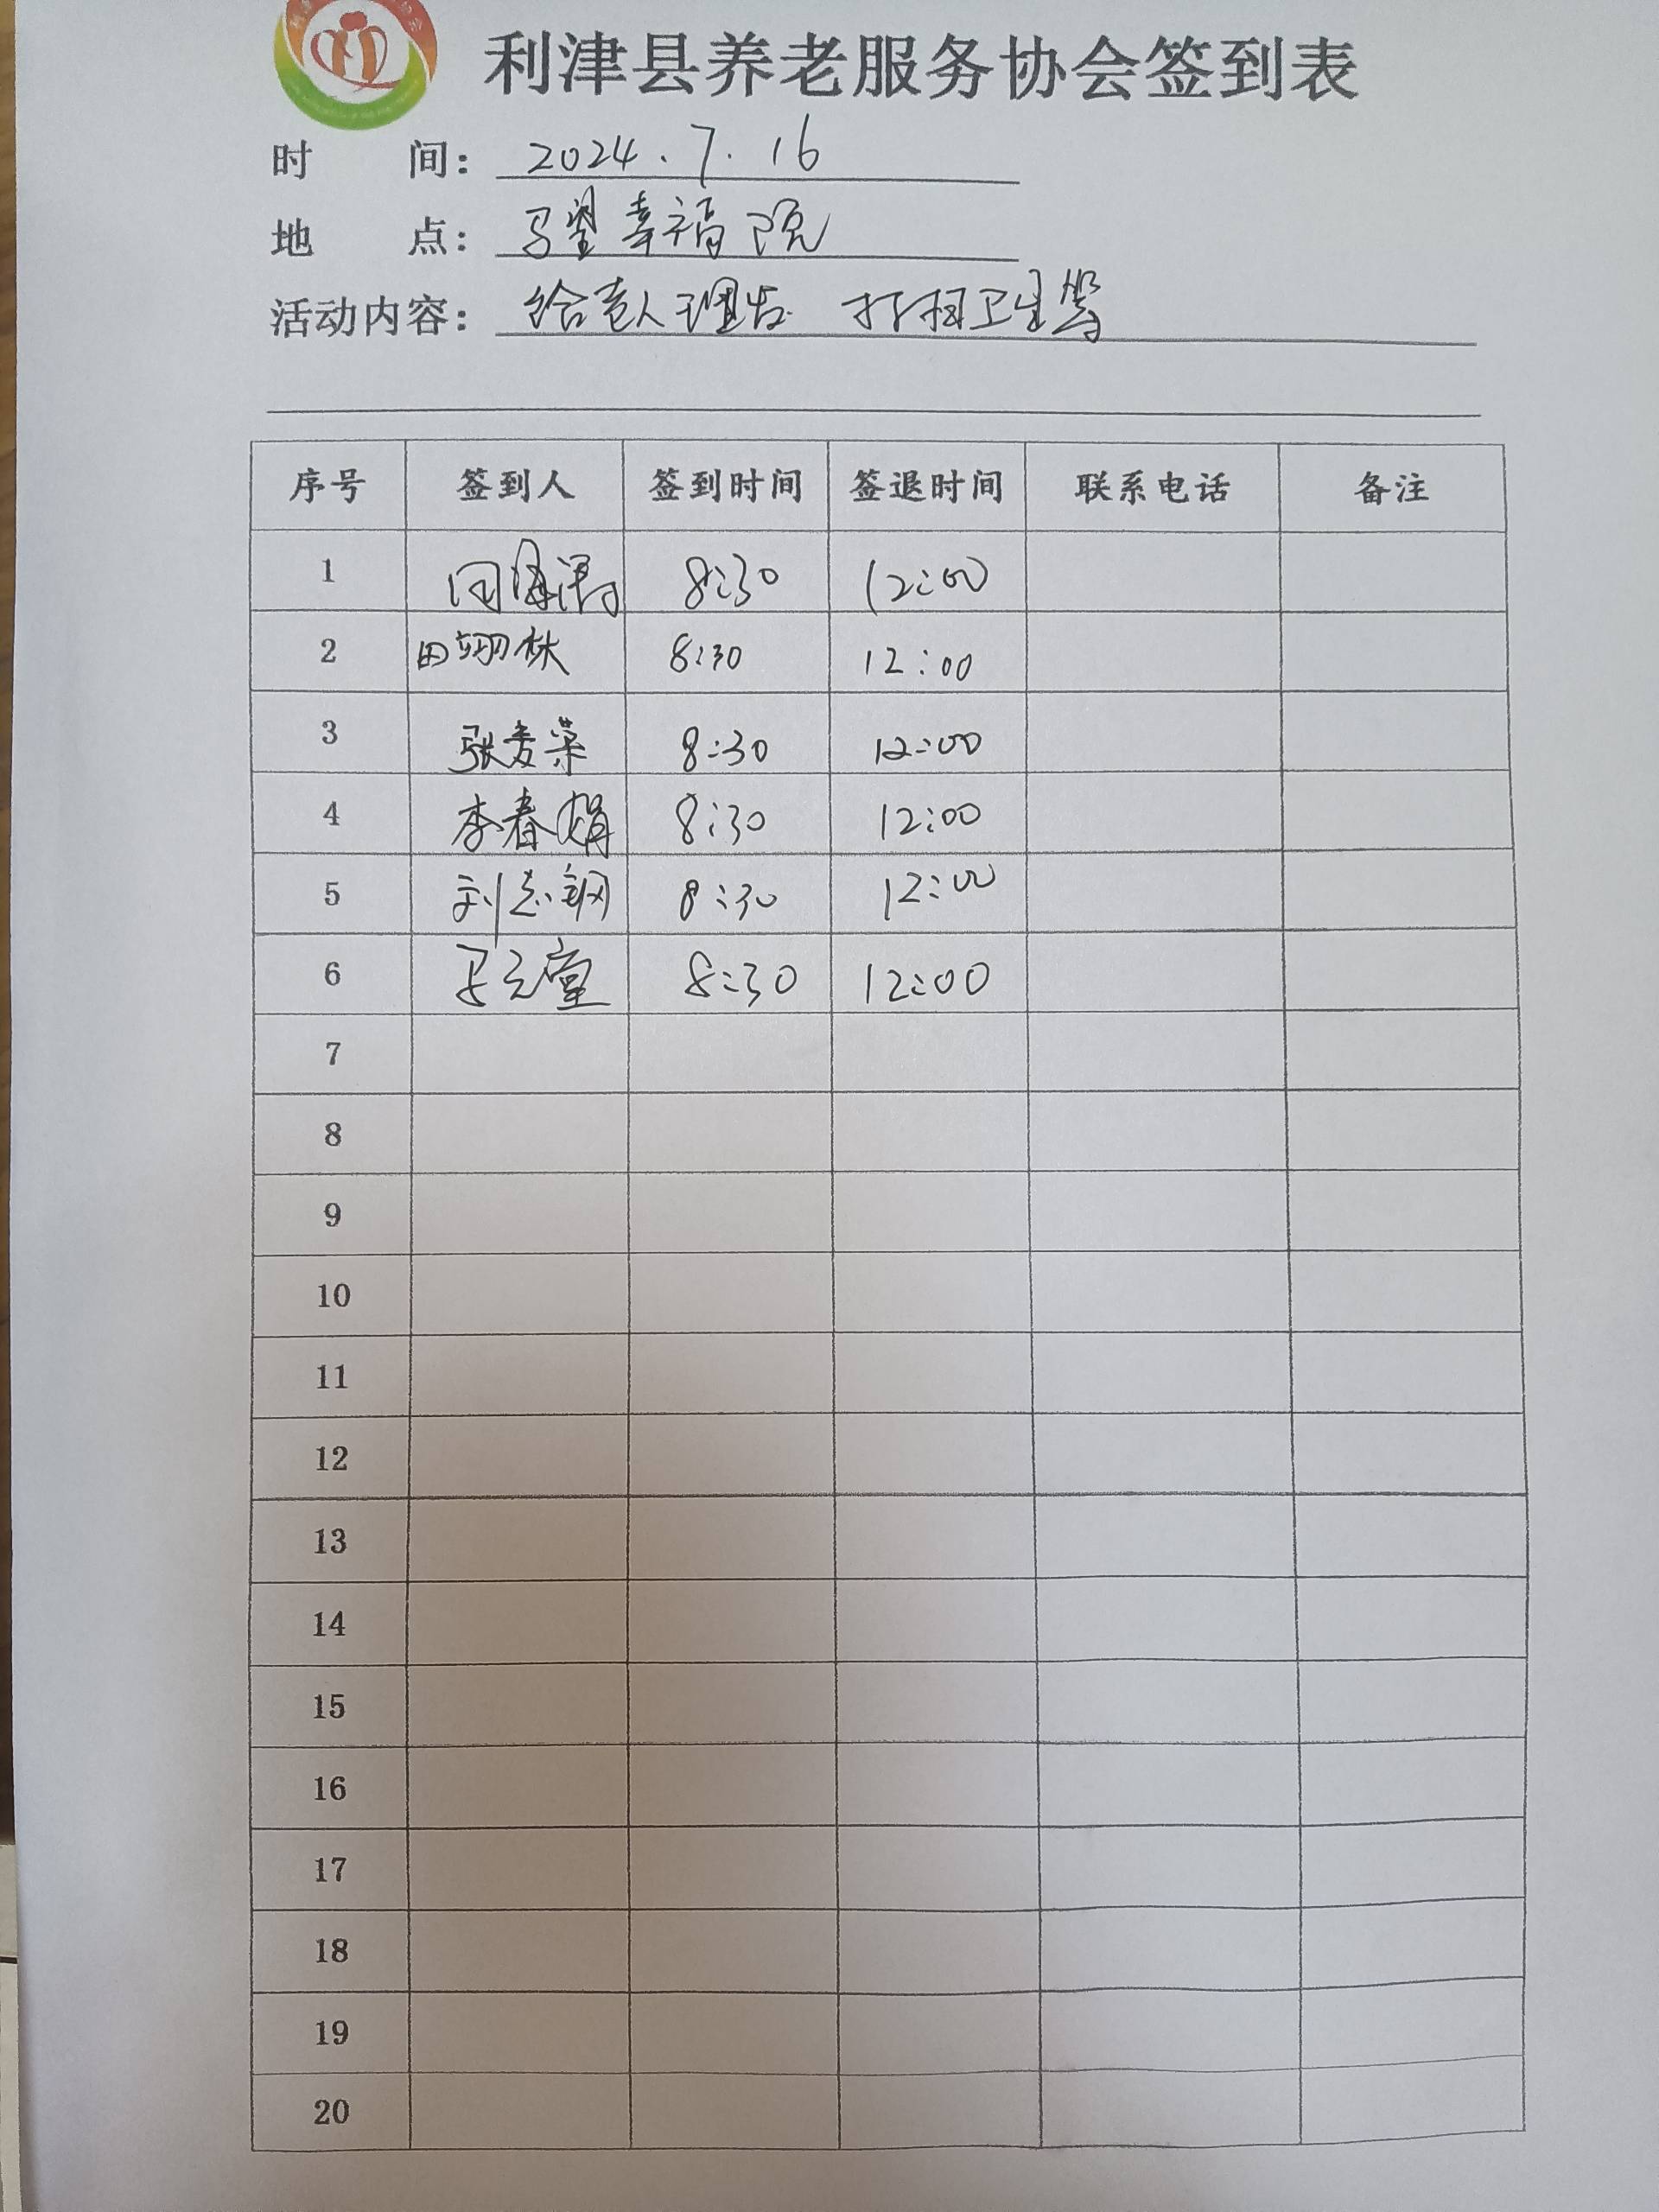 利津县养老服务协会签到表
时 间： 2024.7.16
地 点： 马望幸福院
活动内容： 给老人理发 打扫卫生等
序号 签到人 签到时间 签退时间 联系电话 备注
1 8:30 12:00
2 田翊林 8:30 12:00
3 张麦菜 8:30 12:00
4 李春娟 8:30 12:00
5 刘志钢 8:30 12:00
6 8:30 12:00
7
8
9
10
11
12
13
14
15
16
17
18
19
20